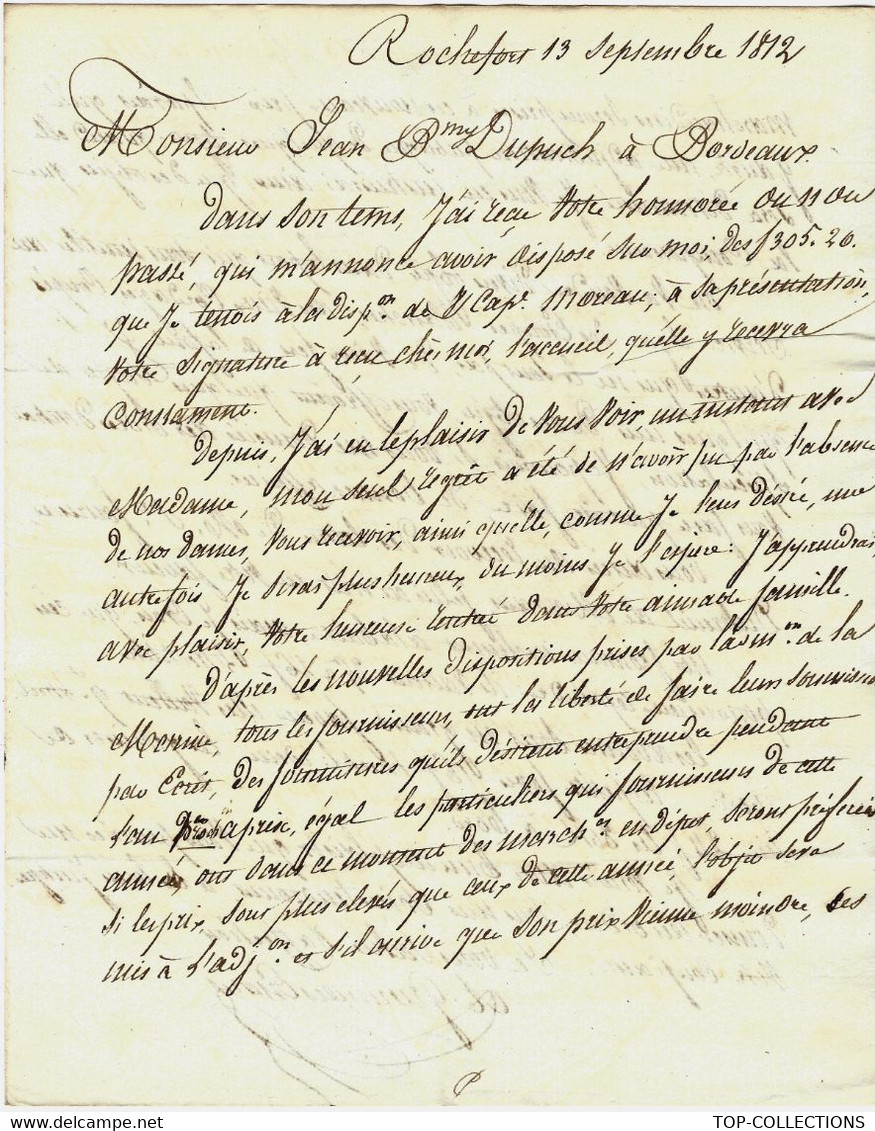 Rochefort 13 Septembre 1812
Monsieur Jean Bmy Dupuch à Bordeaux
dans son tems, J'ai reçu votre honnorée du 11 du
passé, qui m'annonce avoir disposé sur moi, des f 305. 20.
que Je tenois à la dispon de Capne Moreau; à sa présentation,
votre signature à reçu chès moi, l'accueil, qu'elle y recevra
Constament.
depuis, J'ai eu le plaisir de vous voir, un instant avec
Madame, mon seul regrèt a été de n'avoir pu par l'absence
de nos dames, vous recevoir, ainsi qu'elle, comme Je l'eus désiré, une
autre fois Je serai plus heureux, du moins Je l'espère: J'apprendrai,
avec plaisir, votre heureuse rentrée dans votre aimable famille.
d'après les nouvelles dispositions prises par l'admon de la
Marine, tous les fournisseurs, ont la liberté de faire leurs soumissions
par Ecrit, des fournitures qu'ils désirent entreprendre pendant
l'an proch a prix, égal les particuliers qui fournisseurs de cette
année, ont dans ce moment des marchses en dépot, seront préferés
si les prix, sont plus elevés que ceux de cette année, l'objet sera
mis à l'adjon et s'il arrive que son prix vienne moindre, ses
TOP-COLLECTIONS